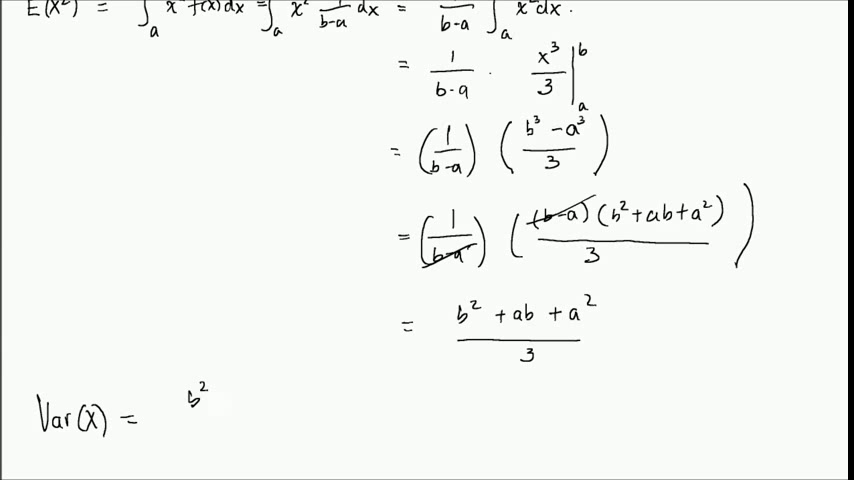 E(X²) = ∫ₐ x² f(x) dx = ∫ₐ x² 1/(b-a) dx = 1/(b-a) ∫ₐ x² dx.
= 1/(b-a) · x³/3 |ₐᵇ
= (1/(b-a)) ((b³ - a³)/3)
= (1/(b-a)) ((b-a)(b² + ab + a²)/3)
= (b² + ab + a²)/3
Var(X) = b²